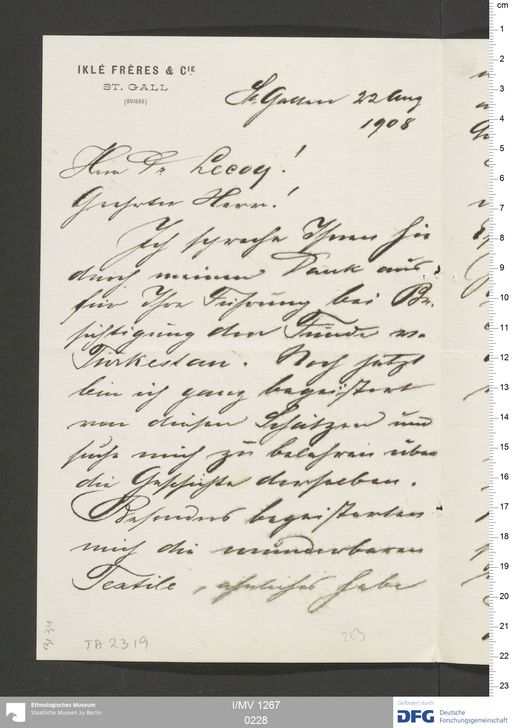 IKLÉ FRÈRES & CIE
ST. GALL
(SUISSE)
St. Gallen 22 Aug
1908
Herr Dr Lecoq!
Geehrter Herr!
Ich spreche Ihnen hie
durch meinen Dank aus
für Ihre Führung bei Be-
sichtigung der Funde v.
Turkestan. Noch jetzt
bin ich ganz begeistert
von diesen Schätzen und
suche mich zu belehren über
die Geschichte derselben.
Besonders begeisterten
mich die wunderbaren
Textile, ähnliches habe
B/34
TA 2319
203
Ethnologisches Museum
Staatliche Museen zu Berlin
I/MV 1267
0228
Gefördert durch
DFG Deutsche
Forschungsgemeinschaft
cm
1
2
3
4
5
6
7
8
9
10
11
12
13
14
15
16
17
18
19
20
21
22
23